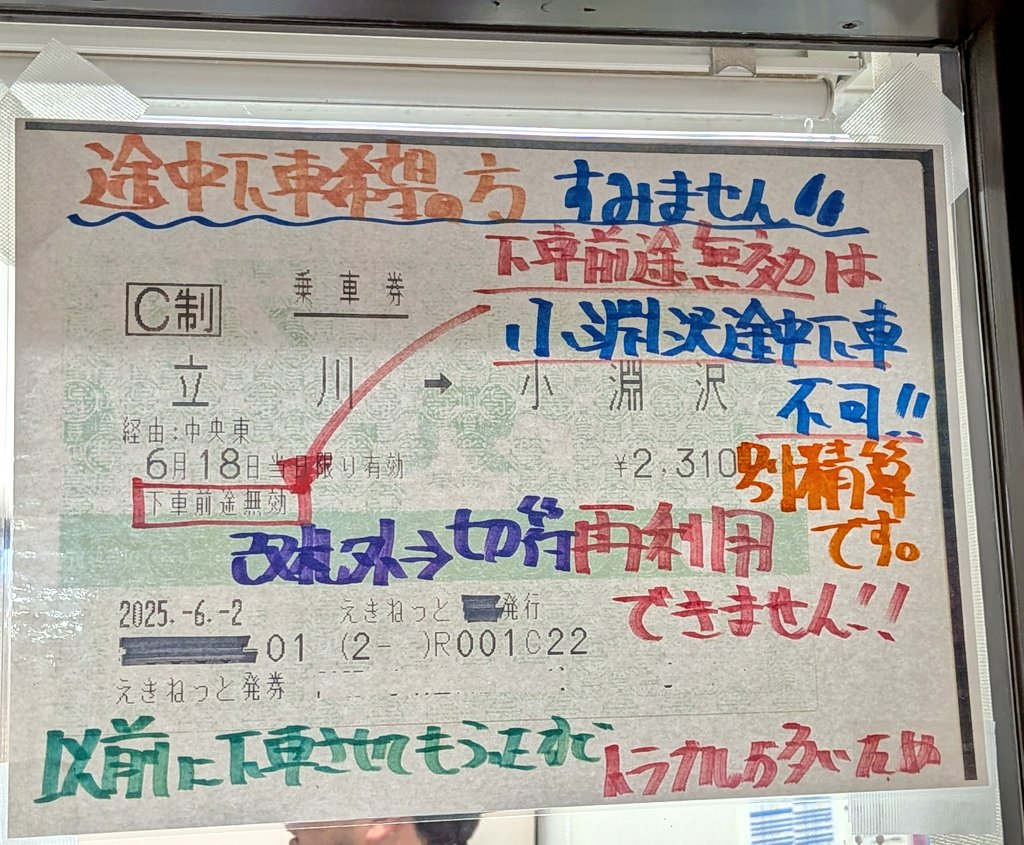 途中下車希望の方 すみません!!
下車前途無効は
小淵沢途中下車
不可!!
C制 乗車券
立川 → 小淵沢
経由:中央東
6月18日当日限り有効 ¥2,310
下車前途無効
別精算
です。
改札外⇒切符再利用
できません!!
2025.-6.-2 えきねっと 発行
01 (2- )R001C22
えきねっと発券
以前に下車させてもらったけど
トラブル多いため